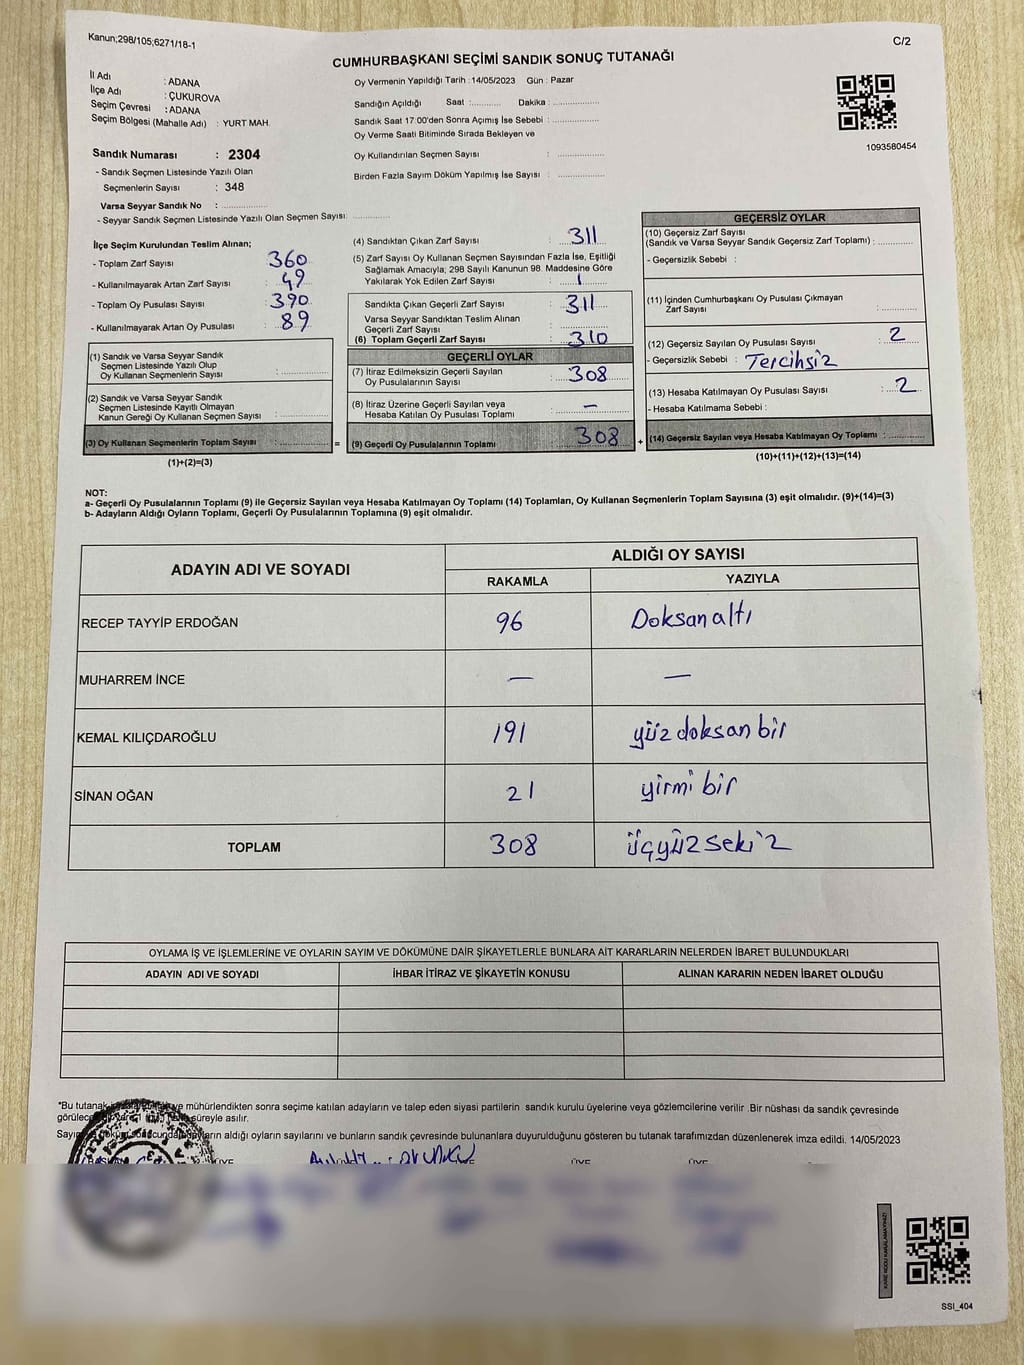 Kanun;298/105;6271/18-1
C/2
CUMHURBAŞKANI SEÇİMİ SANDIK SONUÇ TUTANAĞI
İl Adı : ADANA
İlçe Adı : ÇUKUROVA
Seçim Çevresi : ADANA
Seçim Bölgesi (Mahalle Adı) : YURT MAH.
Sandık Numarası : 2304
- Sandık Seçmen Listesinde Yazılı Olan
Seçmenlerin Sayısı : 348
Varsa Seyyar Sandık No : ............
- Seyyar Sandık Seçmen Listesinde Yazılı Olan Seçmen Sayısı: ............
Oy Vermenin Yapıldığı Tarih : 14/05/2023 Gün : Pazar
Sandığın Açıldığı Saat :.......... Dakika : ..............
Sandık Saat 17:00'den Sonra Açımış İse Sebebi : ..............
Oy Verme Saati Bitiminde Sırada Bekleyen ve
Oy Kullandırılan Seçmen Sayısı : ..............
Birden Fazla Sayım Döküm Yapılmış İse Sayısı : ..............
1093580454
İlçe Seçim Kurulundan Teslim Alınan;
- Toplam Zarf Sayısı : 360
- Kullanılmayarak Artan Zarf Sayısı : 49
- Toplam Oy Pusulası Sayısı : 390
- Kullanılmayarak Artan Oy Pusulası : 89
(1) Sandık ve Varsa Seyyar Sandık
Seçmen Listesinde Yazılı Olup
Oy Kullanan Seçmenlerin Sayısı : ............
(2) Sandık ve Varsa Seyyar Sandık
Seçmen Listesinde Kayıtlı Olmayan
Kanun Gereği Oy Kullanan Seçmen Sayısı : ............
(3) Oy Kullanan Seçmenlerin Toplam Sayısı : ............
(1)+(2)=(3)
(4) Sandıktan Çıkan Zarf Sayısı : 311
(5) Zarf Sayısı Oy Kullanan Seçmen Sayısından Fazla İse, Eşitliği
Sağlamak Amacıyla; 298 Sayılı Kanunun 98. Maddesine Göre
Yakılarak Yok Edilen Zarf Sayısı : 1
Sandıkta Çıkan Geçerli Zarf Sayısı : 311
Varsa Seyyar Sandıktan Teslim Alınan
Geçerli Zarf Sayısı : ............
(6) Toplam Geçerli Zarf Sayısı : 310
GEÇERLİ OYLAR
(7) İtiraz Edilmeksizin Geçerli Sayılan
Oy Pusulalarının Sayısı : 308
(8) İtiraz Üzerine Geçerli Sayılan veya
Hesaba Katılan Oy Pusulası Toplamı : —
= (9) Geçerli Oy Pusulalarının Toplamı : 308 +
GEÇERSİZ OYLAR
(10) Geçersiz Zarf Sayısı
(Sandık ve Varsa Seyyar Sandık Geçersiz Zarf Toplamı) : ............
- Geçersizlik Sebebi :
(11) İçinden Cumhurbaşkanı Oy Pusulası Çıkmayan
Zarf Sayısı : ............
(12) Geçersiz Sayılan Oy Pusulası Sayısı : 2
- Geçersizlik Sebebi : Tercihsiz
(13) Hesaba Katılmayan Oy Pusulası Sayısı : 2
- Hesaba Katılmama Sebebi :
(14) Geçersiz Sayılan veya Hesaba Katılmayan Oy Toplamı : ............
(10)+(11)+(12)+(13)=(14)
NOT:
a- Geçerli Oy Pusulalarının Toplamı (9) ile Geçersiz Sayılan veya Hesaba Katılmayan Oy Toplamı (14) Toplamları, Oy Kullanan Seçmenlerin Toplam Sayısına (3) eşit olmalıdır. (9)+(14)=(3)
b- Adayların Aldığı Oyların Toplamı, Geçerli Oy Pusulalarının Toplamına (9) eşit olmalıdır.
ADAYIN ADI VE SOYADI ALDIĞI OY SAYISI
RAKAMLA YAZIYLA
RECEP TAYYİP ERDOĞAN 96 Doksanaltı
MUHARREM İNCE — —
KEMAL KILIÇDAROĞLU 191 yüzdoksan bir
SİNAN OĞAN 21 yirmi bir
TOPLAM 308 üçyüzsekiz
OYLAMA İŞ VE İŞLEMLERİNE VE OYLARIN SAYIM VE DÖKÜMÜNE DAİR ŞİKAYETLERLE BUNLARA AİT KARARLARIN NELERDEN İBARET BULUNDUKLARI
ADAYIN ADI VE SOYADI İHBAR İTİRAZ VE ŞİKAYETİN KONUSU ALINAN KARARIN NEDEN İBARET OLDUĞU
*Bu tutanak ve mühürlendikten sonra seçime katılan adayların ve talep eden siyasi partilerin sandık kurulu üyelerine veya gözlemcilerine verilir .Bir nüshası da sandık çevresinde
süreyle asılır.
aldığı oyların sayılarını ve bunların sandık çevresinde bulunanlara duyurulduğunu gösteren bu tutanak tarafımızdan düzenlenerek imza edildi. 14/05/2023
ÜYE ÜYE
KARE KODU KARALAMAYINIZ!
SSI_404